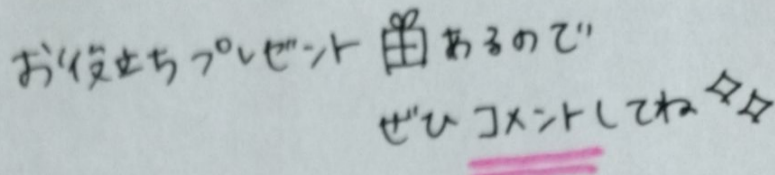 お役立ちプレゼント🎁あるので
ぜひコメントしてね✧✧